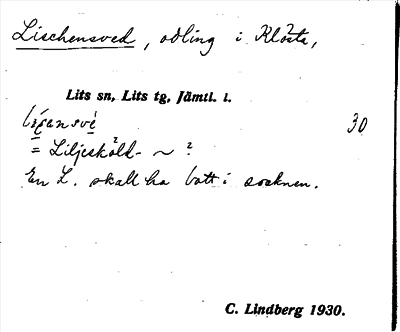 Lischensved, odling i Klösta,
Lits sn, Lits tg, Jämtl. l.
30
= Liljesköld- ~ ?
En L. skall ha bott i socknen.
C. Lindberg 1930.